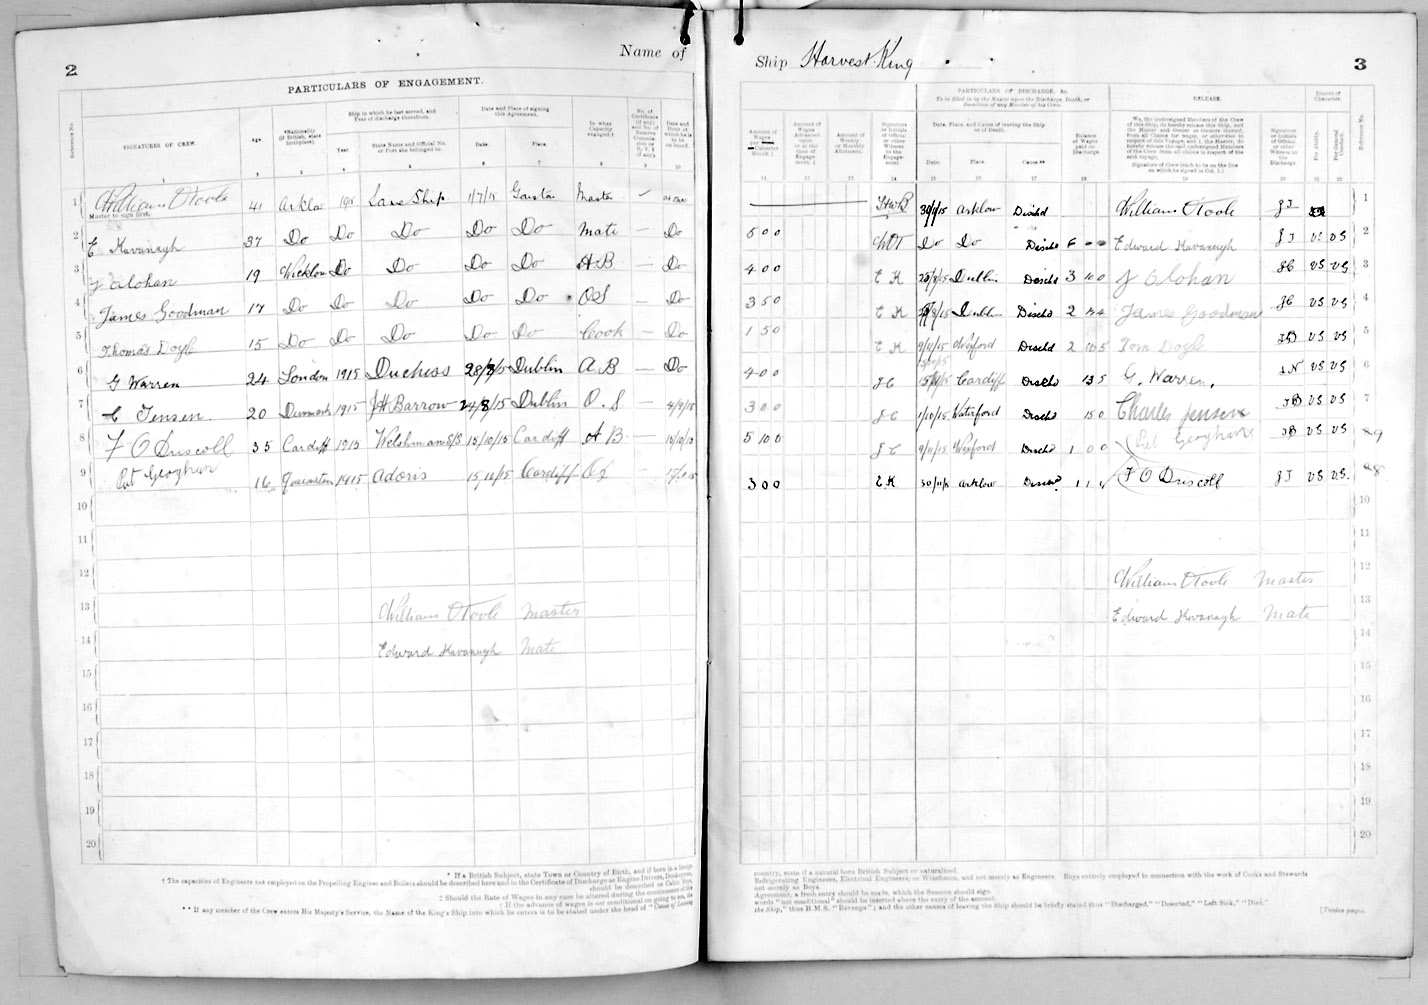 2
Name of
PARTICULARS OF ENGAGEMENT.
Reference No.
SIGNATURES OF CREW.
Age.
*Nationality (if British, state birthplace).
Ship in which he last served, and Year of discharge therefrom.
Year.
State Name and Official No. or Port she belonged to.
Date and Place of signing this Agreement.
Date.
Place.
In what Capacity engaged.†
No. of Certificate (if any) and No. of Reserve Commission or R.V.2 (if any).
Date and Hour at which he is to be on board.
1 William O'Toole 41 Arklow 1915 Same Ship 1/7/15 Garston Master
Master to sign first.
2 E Kavanagh 37 Do Do Do Do Do Mate — Do
3 J Olohan 19 Wicklow Do Do Do Do A B — Do
4 James Goodman 17 Do Do Do Do Do O S — Do
5 Thomas Doyle 15 Do Do Do Do Do Cook — Do
6 G Warren 24 London 1915 Duchess 28/8/15 Dublin A B — Do
7 C Jensen 20 Denmark 1915 JH Barrow 24/8/15 Dublin O. S —
8 F O Driscoll 35 Cardiff 1915 Welshman S/S 15/10/15 Cardiff A B —
9 Pat Geoghan 16 1915 Adoris Cardiff O S —
10
11
12
13 William O'Toole Master
14 Edward Kavanagh Mate
15
16
17
18
19
20
* If a British Subject, state Town or Country of Birth, and if born in a foreign
† The capacities of Engineers not employed on the Propelling Engines and Boilers should be described here and in the Certificate of Discharge as Engine Drivers, Donkeymen,
should be described as Cabin Boys,
‡ Should the Rate of Wages in any case be altered during the continuance of the
‡ If the advance of wages is not conditional on going to sea, the
** If any member of the Crew enters His Majesty's Service, the Name of the King's Ship into which he enters is to be stated under the head of "Cause of Leaving
Ship Harvest King
3
PARTICULARS OF DISCHARGE, &c.
To be filled in by the Master upon the Discharge, Death, or Desertion of any Member of his Crew.
RELEASE.
Report of Character.
Amount of Wages per Calendar Month ‡
Amount of Wages Advanced upon or at the time of Engagement. ‡
Amount of Weekly or Monthly Allotment.
Signature or Initials of Official or other Witness to the Engagement
Date, Place, and Cause of leaving the Ship or of Death.
Date.
Place.
Cause**
Balance of Wages paid on Discharge.
We, the undersigned Members of the Crew of this Ship, do hereby release this Ship, and the Master and Owner or Owners thereof, from all Claims for wages, or otherwise in respect of this Voyage, and I, the Master, do hereby release the said undersigned Members of the Crew from all claims in respect of the said voyage.
Signature of Crew (each to be on the line on which he signed in Col. 1.)
Signature or Initials of Official or other Witness to the Discharge.
For Ability.
For General Conduct.
Reference No.
30/11/15 Arklow Dischd William O'Toole J J 1
5 0 0 WOT Do Do Dischd 6 – – Edward Kavanagh J J VS VS 2
4 0 0 E K Dublin Dischd 3 10 0 J Olohan JC VS VS 3
3 5 0 E K Dublin Dischd 2 James Goodman JC VS VS 4
1 5 0 E K 9/11/15 Wexford Dischd 2 Tom Doyle VS VS 5
4 0 0 J C Cardiff Dischd 13 5 G. Warren. VS VS 6
3 0 0 J C 1/10/15 Waterford Dischd 15 0 Charles Jensen VS VS 7
5 10 0 J C 9/11/15 Wexford Dischd 1 0 0 Pat Geoghan VS VS 9
3 0 0 E K 30/11/15 Arklow Dischd F O Driscoll J J VS VS. 8
10
11
William O'Toole Master 12
Edward Kavanagh Mate 13
14
15
16
17
18
19
20
country, state if a natural born British Subject or naturalised.
Refrigerating Engineers, Electrical Engineers, or Winchmen, and not merely as Engineers. Boys entirely employed in connection with the work of Cooks and Stewards
not merely as Boys.
Agreement, a fresh entry should be made, which the Seamen should sign.
words "not conditional" should be inserted above the entry of the amount.
the Ship," thus H.M.S. "Revenge"; and the other causes of leaving the Ship should be briefly stated thus "Discharged," "Deserted," "Left Sick," "Died."
[Twelve pages.